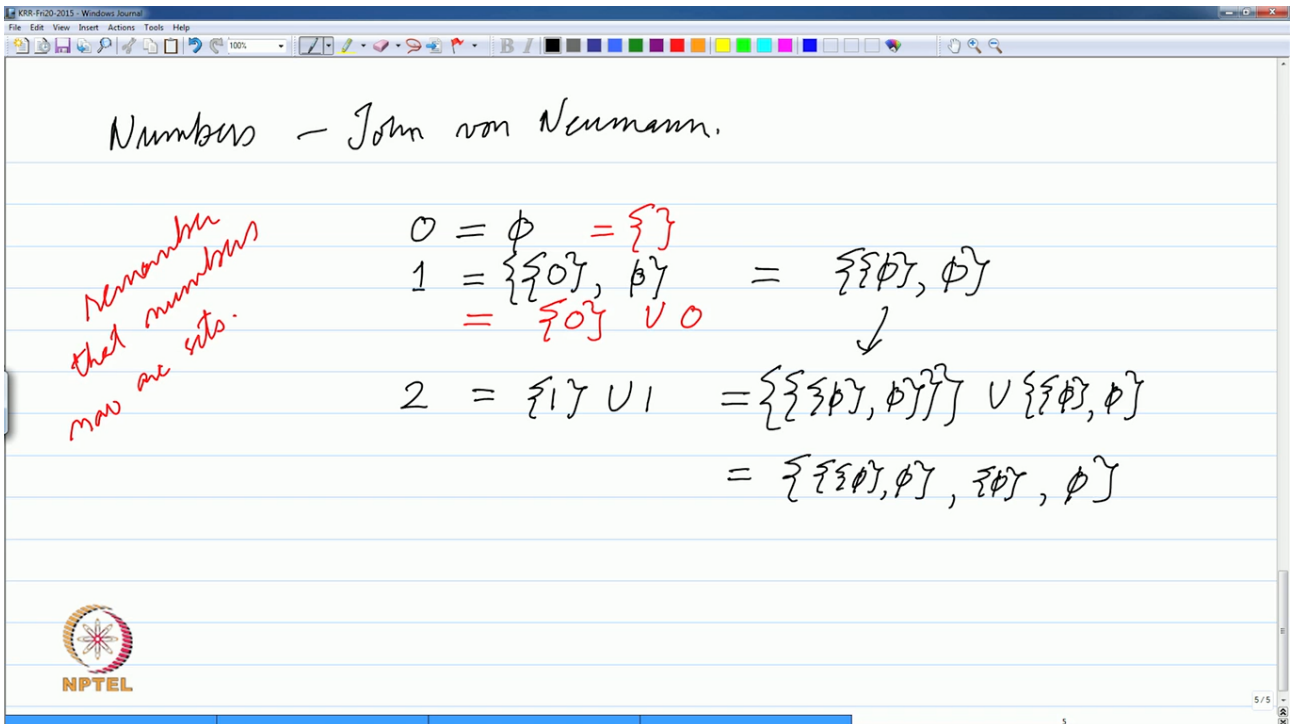 KRR-Fri20-2015 - Windows Journal
File Edit View Insert Actions Tools Help
100%
B I
Numbers – John von Neumann.
remember
that numbers
now are sets.
0 = ϕ = { }
1 = {{0}, ϕ} = {{ϕ}, ϕ}
= {0} ∪ 0
2 = {1} ∪ 1 = {{{{ϕ}, ϕ}}} ∪ {{ϕ}, ϕ}
= {{{ϕ}, ϕ}, {ϕ}, ϕ}
NPTEL
5 / 5
5